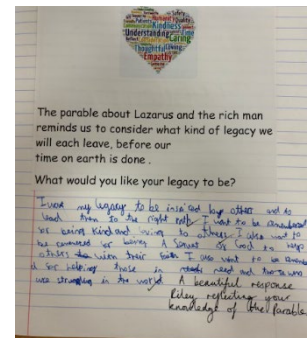 Safety
Humanity
Patients
Kindness
Understanding
Time
Caring
Thoughtful
Empathy
The parable about Lazarus and the rich man
reminds us to consider what kind of legacy we
will each leave, before our
time on earth is done .
What would you like your legacy to be?
my legacy to be by others and to
lead them to the right I want to be
for being kind and to others I also want to
be for being A Servant of God to help
others with their I also want to be
for helping those in need and those who
are struggling in the world A beautiful response
Riley, reflecting your
knowledge of the Parable.